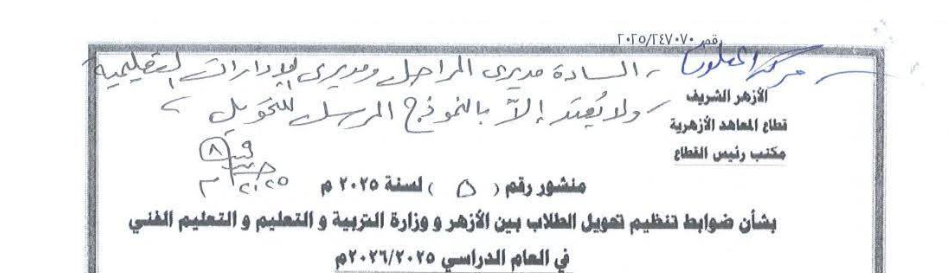 رقم ٢٠٢٥/٢٤٧٠٧٠
مركز المعلومات - السادة مديرى المراحل ومديرى الإدارات التعليمية
ولا يُعتد إلا بالنموذج المرسل للتحويل
الأزهر الشريف
قطاع المعاهد الأزهرية
مكتب رئيس القطاع
٨
٢٠٢٥
منشور رقم ( ٥ ) لسنة ٢٠٢٥ م
بشأن ضوابط تنظيم تحويل الطلاب بين الأزهر و وزارة التربية و التعليم و التعليم الفني
في العام الدراسي ٢٠٢٦/٢٠٢٥م